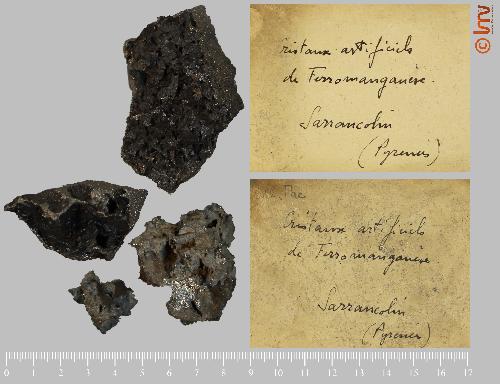 Cristaux artificiels
de Ferromanganèse.
Sarrancolin
(Pyrenees)
Mac
Cristaux artificiels
de Ferromanganèse
Sarrancolin
(Pyrenees)
© lmv
0 1 2 3 4 5 6 7 8 9 10 11 12 13 14 15 16 17